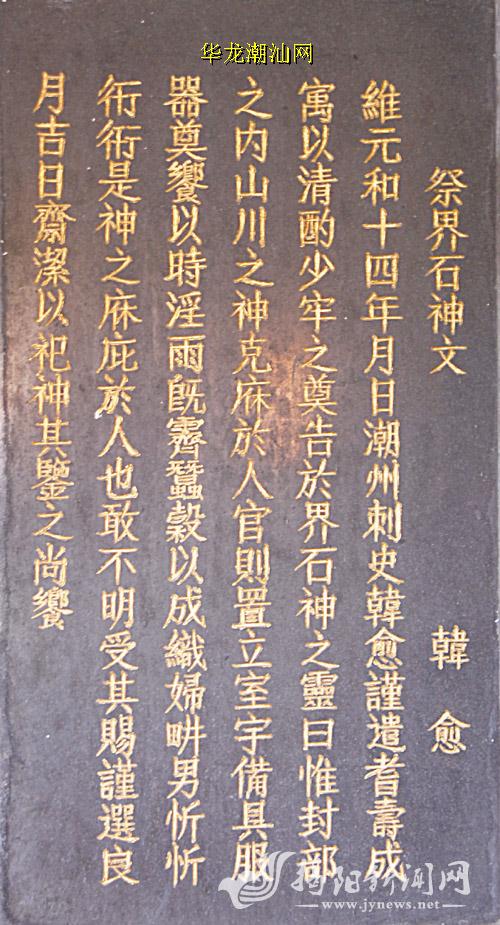 华龙潮汕网
祭界石神文 韓愈
維元和十四年月日潮州刺史韓愈謹遣耆壽成
寓以清酌少牢之奠告於界石神之靈曰惟封部
之內山川之神克庥於人官則置立室宇備具服
器奠饗以時淫雨既霽蠶穀以成織婦畊男忻忻
衎衎是神之庥庇於人也敢不明受其賜謹選良
月吉日齋潔以祀神其鑒之尚饗
揭阳新闻网
www.jynews.net